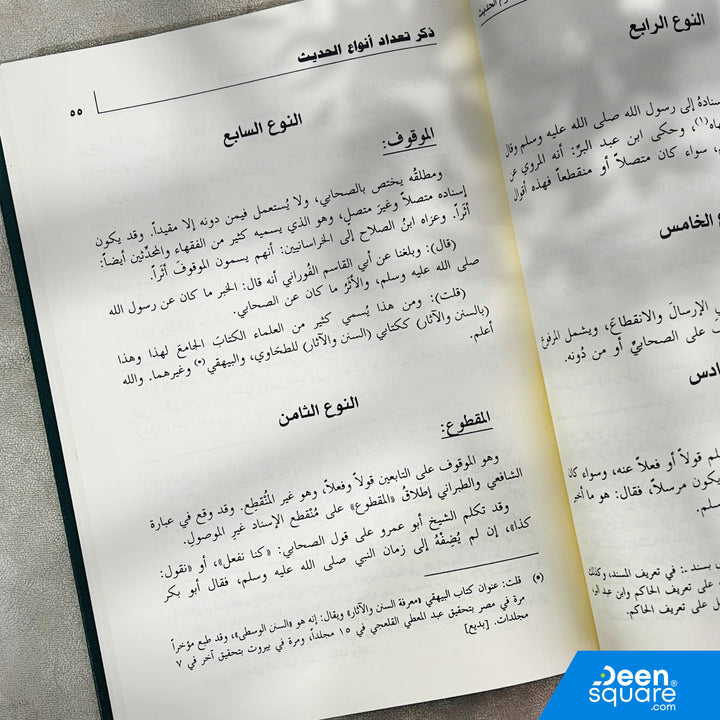 النوع الرابع
إسناده إلى رسول الله صلى الله عليه وسلم وقال
، وحكى ابن عبد البرِّ: أنه المروي عن
، سواء كان متصلاً أو منقطعاً فهذه أقوال
الخامس
الإرسالَ والانقطاعَ، ويشمل المرفوع
على الصحابيِّ أو من دُونه.
قولاً أو فعلاً عنه، وسواء كان
يكون مرسلاً، فقال: هو ما أخبر
بسند .: في تعريف المسند، وكذلك
على تعريف الحاكم وابن عبد البر،
على تعريف الحاكم.
ذكر تعداد أنواع الحديث
٥٥
النوع السابع
الموقوف:
ومطلقُه يختص بالصحابي، ولا يُستعمل فيمن دونه إلا مقيداً. وقد يكون
إسناده متصلاً وغيرَ متصلٍ، وهو الذي يسميه كثير من الفقهاء والمحدِّثين أيضاً:
أثَراً. وعزاه ابنُ الصلاح إلى الخراسانيين: أنهم يسمون الموقوفَ أثَراً.
(قال): وبلغنا عن أبي القاسم الفُوراني أنه قال: الخبر ما كان عن رسول الله
صلى الله عليه وسلم، والأثَرُ ما كان عن الصحابي.
(قلت): ومن هذا يُسمي كثير من العلماء الكتابَ الجامعَ لهذا وهذا
(بالسنن والآثار) ككتابي (السنن والآثار) للطحَاوي، والبيهقي(*) وغيرهما. والله
أعلم.
النوع الثامن
المقطوع:
وهو الموقوف على التابعين قولاً وفعلاً، وهو غير المُنْقطع. وقد وقع في عبارة
الشافعي والطبراني إطلاقُ «المقطوع» على مُنْقطع الإسناد غيرِ الموصولِ.
وقد تكلم الشيخ أبو عمرو على قول الصحابي: «كنا نفعل»، أو «نقول:
كذا»، إن لم يُضِفْهُ إلى زمان النبي صلى الله عليه وسلم، فقال أبو بكر
(*) قلت: عنوان كتاب البيهقي «معرفة السنن والآثار» ويقال: إنه هو «السنن الوسطى»، وقد طبع مؤخراً
مرة في مصر بتحقيق عبد المعطي القلعجي في ١٥ مجلداً، ومرة في بيروت بتحقيق آخر في ٧
مجلدات. [بديع]
Deen
square®
.com